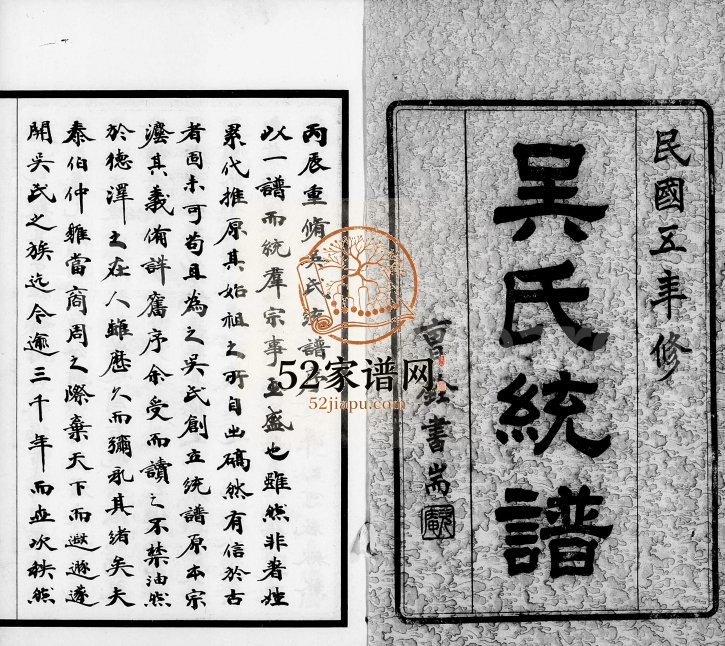 民國五年修
吳氏統譜
書耑
丙辰重脩吳氏統譜序
以一譜而統羣宗事至盛也雖然非著姓
累代推原其始祖之所自出碻然有信於古
者固未可苟且為之吳氏創立統譜原本宗
濅其義脩詳舊序余受而讀之不禁油然
於德澤之在人雖歷久而彌永其緒矣夫
泰伯仲雍當商周之際棄天下而遯遂
開吳氏之族迄今逾三千年而血次秩然
52家谱网
52jiapu.com